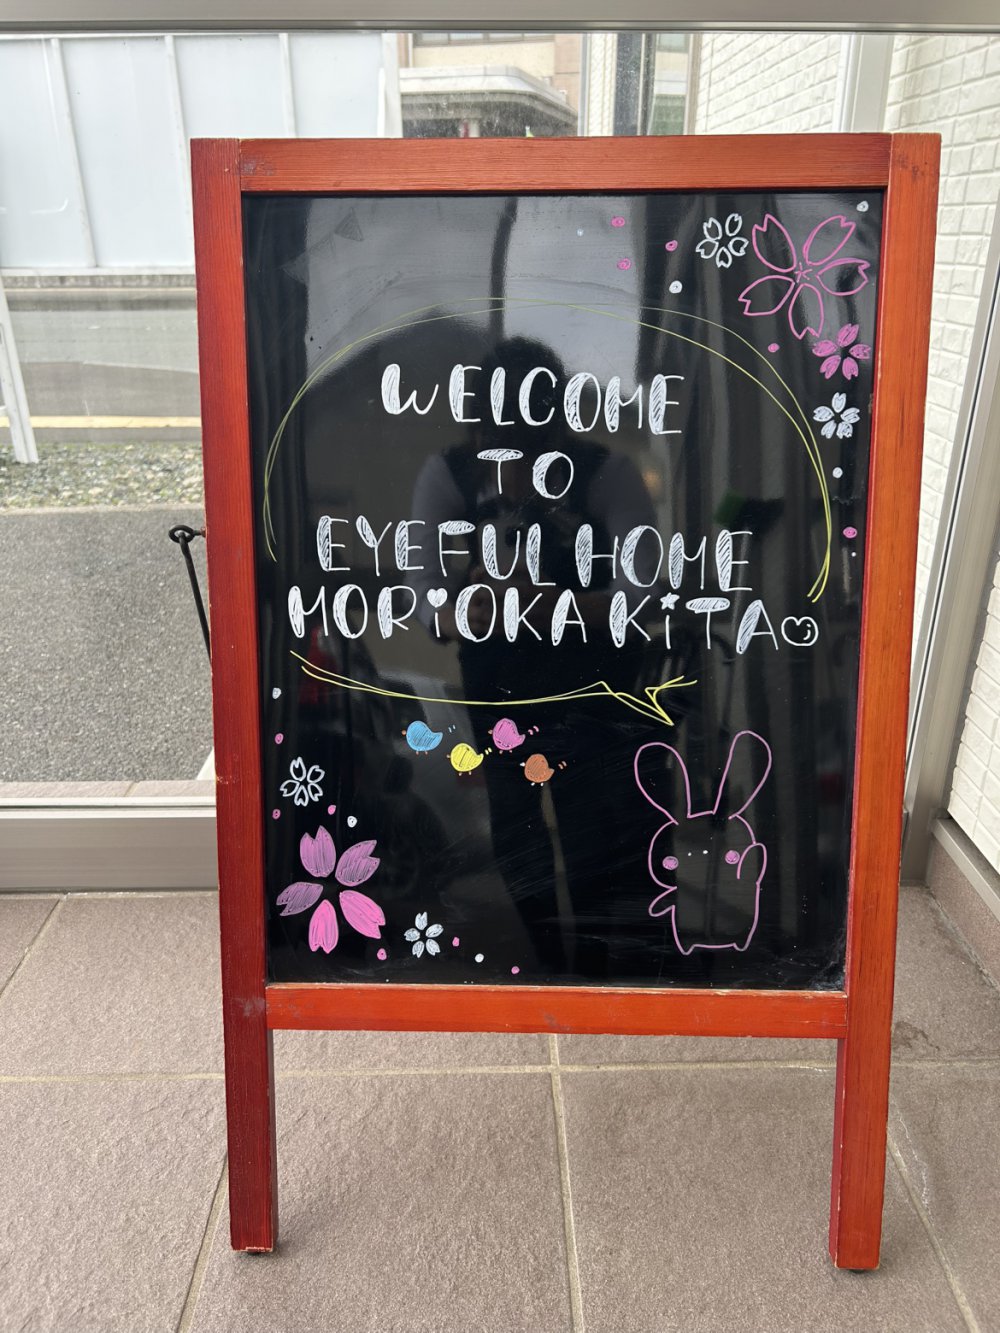 WELCOME
TO
EYEFUL HOME
MORiOKA KiTA